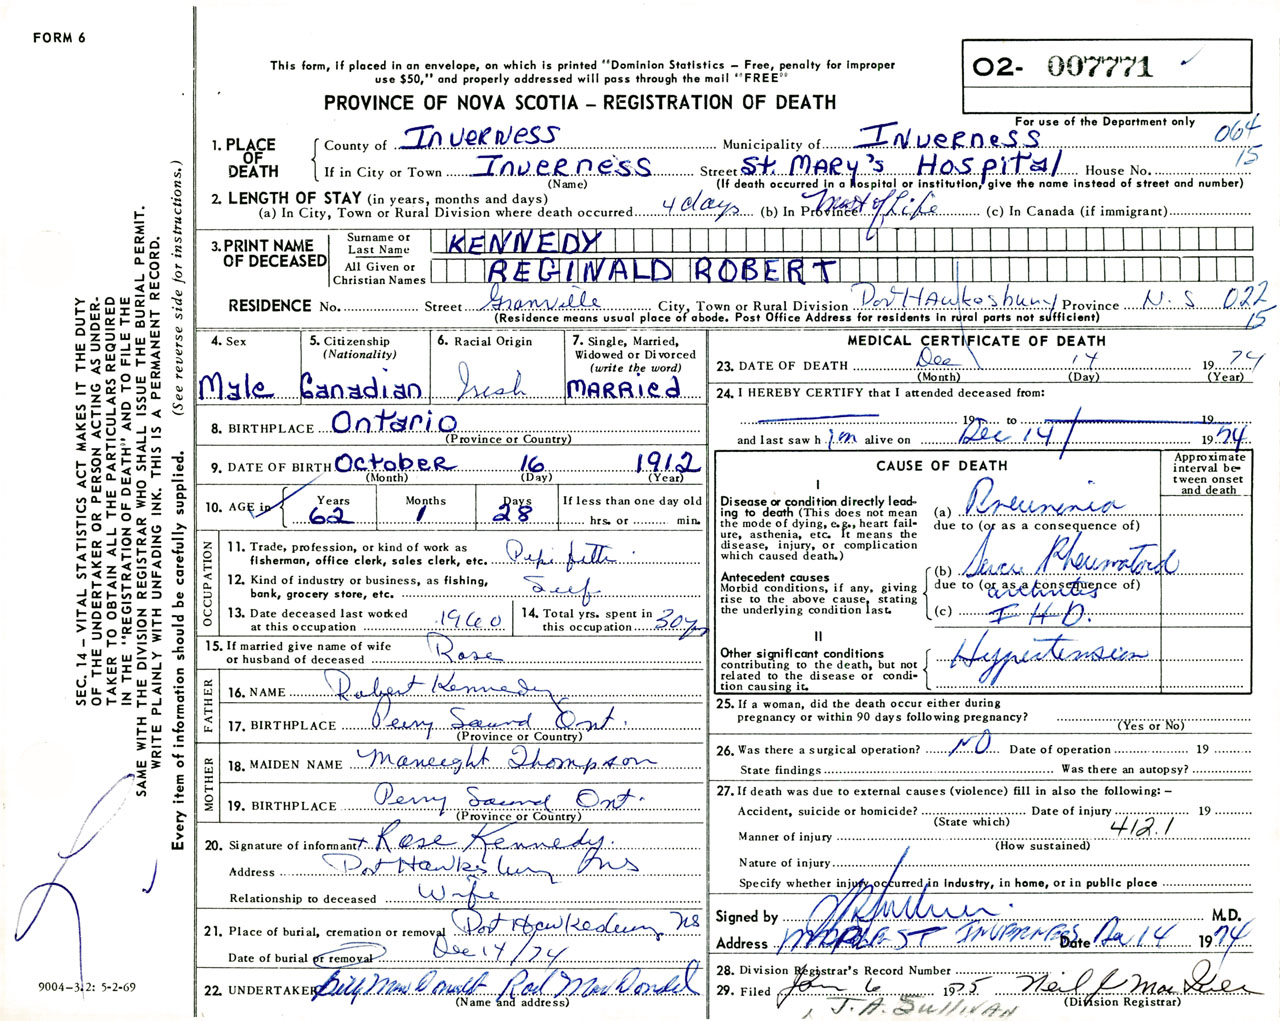 FORM 6
This form, if placed in an envelope, on which is printed "Dominion Statistics – Free, penalty for improper
use $50," and properly addressed will pass through the mail "FREE"
O2- 007771
For use of the Department only
PROVINCE OF NOVA SCOTIA – REGISTRATION OF DEATH
064
15
1. PLACE OF DEATH
County of Inverness Municipality of Inverness
If in City or Town Inverness Street St. Mary's Hospital House No.
(Name) (If death occurred in a hospital or institution, give the name instead of street and number)
2. LENGTH OF STAY (in years, months and days)
(a) In City, Town or Rural Division where death occurred 4 days (b) In Province Most of Life (c) In Canada (if immigrant)
3. PRINT NAME OF DECEASED
Surname or Last Name KENNEDY
All Given or Christian Names REGINALD ROBERT
RESIDENCE No. Street Granville City, Town or Rural Division Port Hawkesbury Province N.S. 022
15
(Residence means usual place of abode. Post Office Address for residents in rural parts not sufficient)
4. Sex
Male
5. Citizenship
(Nationality)
Canadian
6. Racial Origin
Irish
7. Single, Married,
Widowed or Divorced
(write the word)
MARRIED
8. BIRTHPLACE Ontario
(Province or Country)
9. DATE OF BIRTH October 16 1912
(Month) (Day) (Year)
10. AGE in
Years Months Days If less than one day old
62 1 28 hrs. or min.
OCCUPATION
11. Trade, profession, or kind of work as
fisherman, office clerk, sales clerk, etc. Pipe fitter
12. Kind of industry or business, as fishing,
bank, grocery store, etc. Self
13. Date deceased last worked
at this occupation 1960
14. Total yrs. spent in
this occupation 30 yrs
15. If married give name of wife
or husband of deceased Rose
FATHER
16. NAME Robert Kennedy
17. BIRTHPLACE Perry Sound Ont.
(Province or Country)
MOTHER
18. MAIDEN NAME Thompson
19. BIRTHPLACE Perry Sound Ont.
(Province or Country)
20. Signature of informant + Rose Kennedy.
Address Port Hawkesbury NS
Relationship to deceased Wife
21. Place of burial, cremation or removal Port Hawkesbury NS
Date of burial or removal Dec 17/74
22. UNDERTAKER Billy MacDonald Rod MacDonald
(Name and address)
MEDICAL CERTIFICATE OF DEATH
23. DATE OF DEATH Dec 14 1974
(Month) (Day) (Year)
24. I HEREBY CERTIFY that I attended deceased from:
19 to 19
and last saw h im alive on Dec 14 1974
CAUSE OF DEATH
Approximate
interval be-
tween onset
and death
I
Disease or condition directly lead-
ing to death (This does not mean
the mode of dying, e.g., heart fail-
ure, asthenia, etc. It means the
disease, injury, or complication
which caused death.)
(a) Pneumonia
due to (or as a consequence of)
Antecedent causes
Morbid conditions, if any, giving
rise to the above cause, stating
the underlying condition last.
(b) Severe Rheumatoid
due to (or as a consequence of)
arthritis
(c) I H D.
II
Other significant conditions
contributing to the death, but not
related to the disease or condi-
tion causing it.
Hypertension
25. If a woman, did the death occur either during
pregnancy or within 90 days following pregnancy?
(Yes or No)
26. Was there a surgical operation? NO Date of operation 19
State findings Was there an autopsy?
27. If death was due to external causes (violence) fill in also the following: –
Accident, suicide or homicide? Date of injury 19
(State which) 412.1
Manner of injury
(How sustained)
Nature of injury
Specify whether injury occurred in Industry, in home, or in public place
Signed by M.D.
Address INVERNESS Date Dec 14 1974
28. Division Registrar's Record Number
29. Filed Jan 6 1975 Neil J
(Division Registrar)
J.A. SULLIVAN
SEC. 14 – VITAL STATISTICS ACT MAKES IT THE DUTY
OF THE UNDERTAKER OR PERSON ACTING AS UNDER-
TAKER TO OBTAIN ALL THE PARTICULARS REQUIRED
IN THE "REGISTRATION OF DEATH" AND TO FILE THE
SAME WITH THE DIVISION REGISTRAR WHO SHALL ISSUE THE BURIAL PERMIT.
WRITE PLAINLY WITH UNFADING INK. THIS IS A PERMANENT RECORD.
Every item of information should be carefully supplied. (See reverse side for instructions.)
9004-3.2: 5-2-69